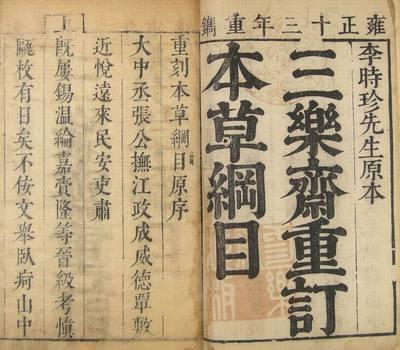 雍正十三年重鐫
李時珍先生原本
三樂齋重訂
本草綱目
重刻本草綱目原序
大中丞張公撫江政成威德覃敷
近悅遠來民安吏肅
上
既屢錫溫綸嘉賚隆等晉級考慎
甌枚有日矣不佞文舉臥痾山中